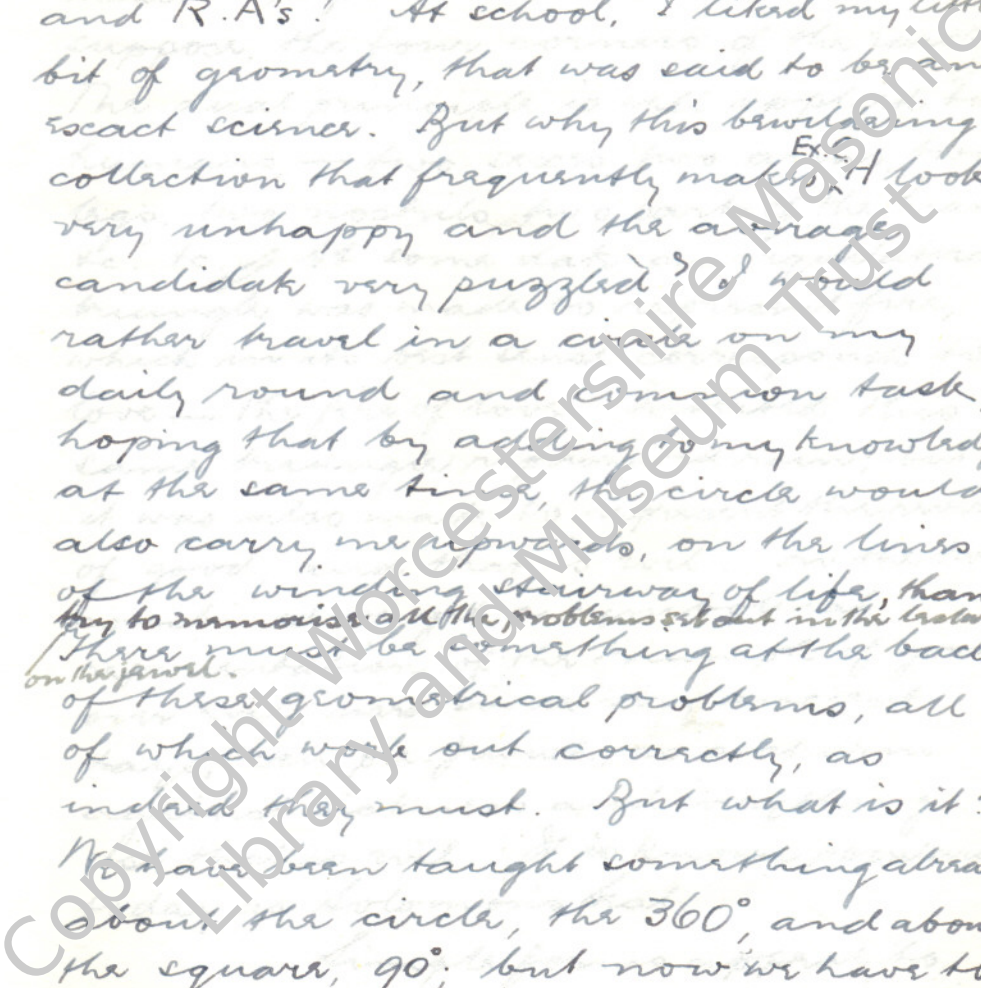 and R.A's! At school, I liked my litt
bit of geometry, that was said to be an
exact science. But why this bewildering
collection that frequently makes Ex. C. H look
very unhappy and the average
candidate very puzzled? I would
rather travel in a circle on my
daily round and common task,
hoping that by adding to my knowled
at the same time, the circle would
also carry me upwards, on the lines
of the winding stairway of life, than
try to memorise all the problems set out in the lectur
on the jewel.
There must be something at the bac
of these geometrical problems, all
of which work out correctly, as
indeed they must. But what is it?
We have been taught something alrea
about the circle, the 360°, and abou
the square, 90°; but now we have to
Copyright Worcestershire Masonic
Library and Museum Trust